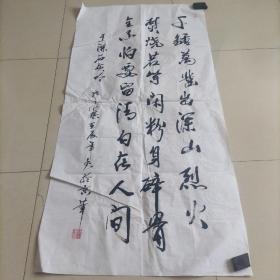 千锤萬鑿出深山烈火
焚烧若等闲粉身碎骨
全不怕要留清白在人间
于谦石灰吟
壬辰年